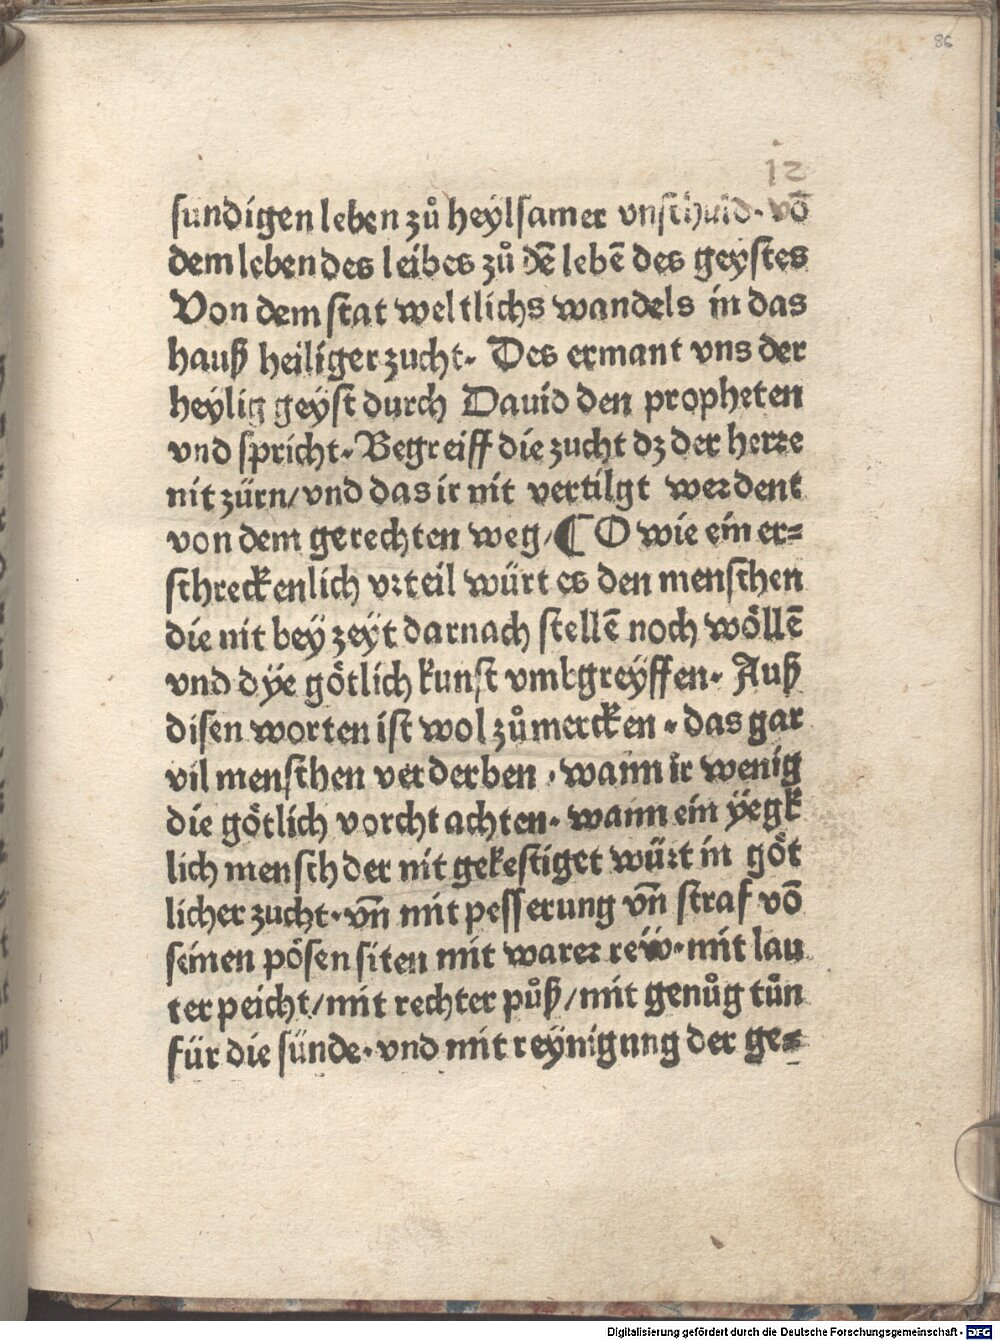 86
12
sundigen leben zů heÿlsamer vnschuld· vō
dem leben des leibes zů dē lebē des geystes
Von dem stat weltlichs wandels in das
hauß heiliger zucht· Des ermant vns der
heÿlig geÿst durch Dauid den propheten
vnd spricht· Begreiff die zucht dz der herre
nit zürn/ vnd das ir nit vertilgt werdent
von dem gerechten weg/ ¶ O wie ein er=
schreckenlich vrteil würt es den menschen
die nit beÿ zeÿt darnach stellē noch wöllē
vnd dÿe götlich kunst vmbgreÿffen· Auß
disen worten ist wol zůmercken · das gar
vil menschen verderben · wann ir wenig
die götlich vorcht achten· wann ein ÿegk
lich mensch der nit gekestiget würt in göt
licher zucht· vn̄ mit pesserung vn̄ straf vō
seinen pösen siten mit warer reẅ· mit lau
ter peicht/ mit rechter půß/ mit genůg tůn
für die sünde· vnd mit reÿnigung der ge=
Digitalisierung gefördert durch die Deutsche Forschungsgemeinschaft - DFG